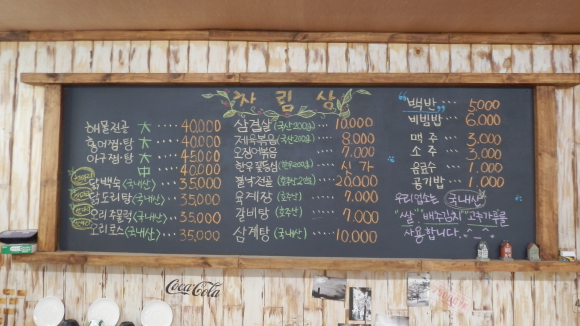 차림상
해물전골 大 ··· 40,000
홍어찜·탕 大 ··· 40,000
아구찜·탕 大 ··· 45,000
中 ··· 40,000
닭백숙 (국내산) ··· 35,000
닭도리탕 (국내산) ··· 35,000
오리주물럭 (국내산) ··· 35,000
오리로스 (국내산) ··· 35,000
삼겹살 (국산200g) ··· 10,000
제육볶음 (국산200g) ··· 8,000
오징어볶음 ··· 7,000
한우꽃등심 ··· 싯가
20,000
육개장 (호주산) ··· 7,000
갈비탕 (호주산) ··· 7,000
삼계탕 (국내산) ··· 10,000
"백반" ··· 5000
비빔밥 ··· 6.000
맥주 ··· 3.000
소주 ··· 3.000
음료수 ··· 1.000
공기밥 ··· 1.000
우리업소는 국내산
"쌀" "배추김치" "고추가루"를
사용합니다..^_^
Coca-Cola